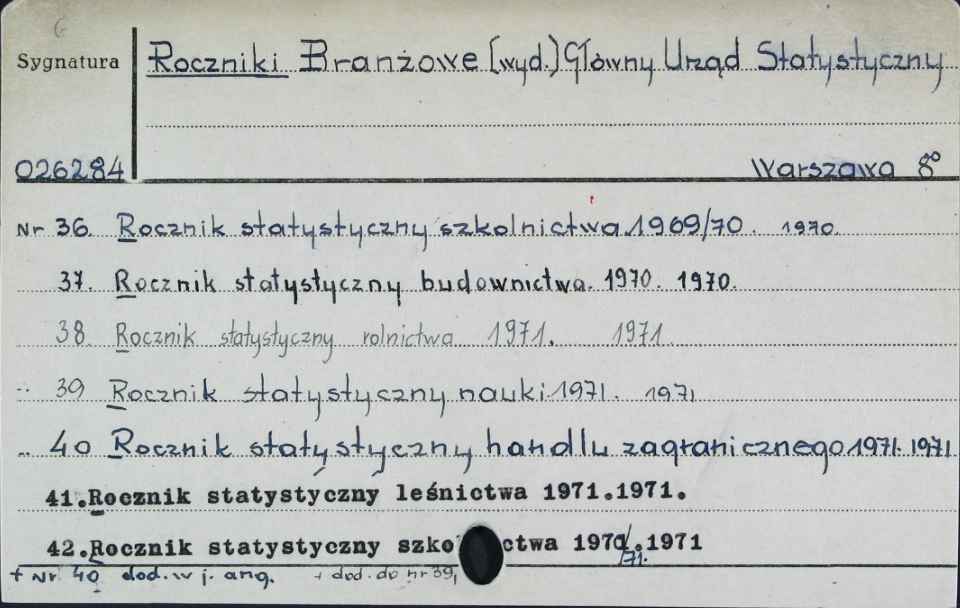 Sygnatura Roczniki Branżowe [wyd.] Główny Urząd Statystyczny
026284 Warszawa 8°
Nr 36. Rocznik statystyczny szkolnictwa 1969/70. 1970.
37. Rocznik statystyczny budownictwa. 1970. 1970.
38. Rocznik statystyczny rolnictwa 1971. 1971.
39 Rocznik statystyczny nauki 1971. 1971
40 Rocznik statystyczny handlu zagranicznego 1971. 1971
41.Rocznik statystyczny leśnictwa 1971.1971.
42.Rocznik statystyczny szko ctwa 1970/71.1971
+ Nr 40 dod. w j. ang. + dod. do nr 39,